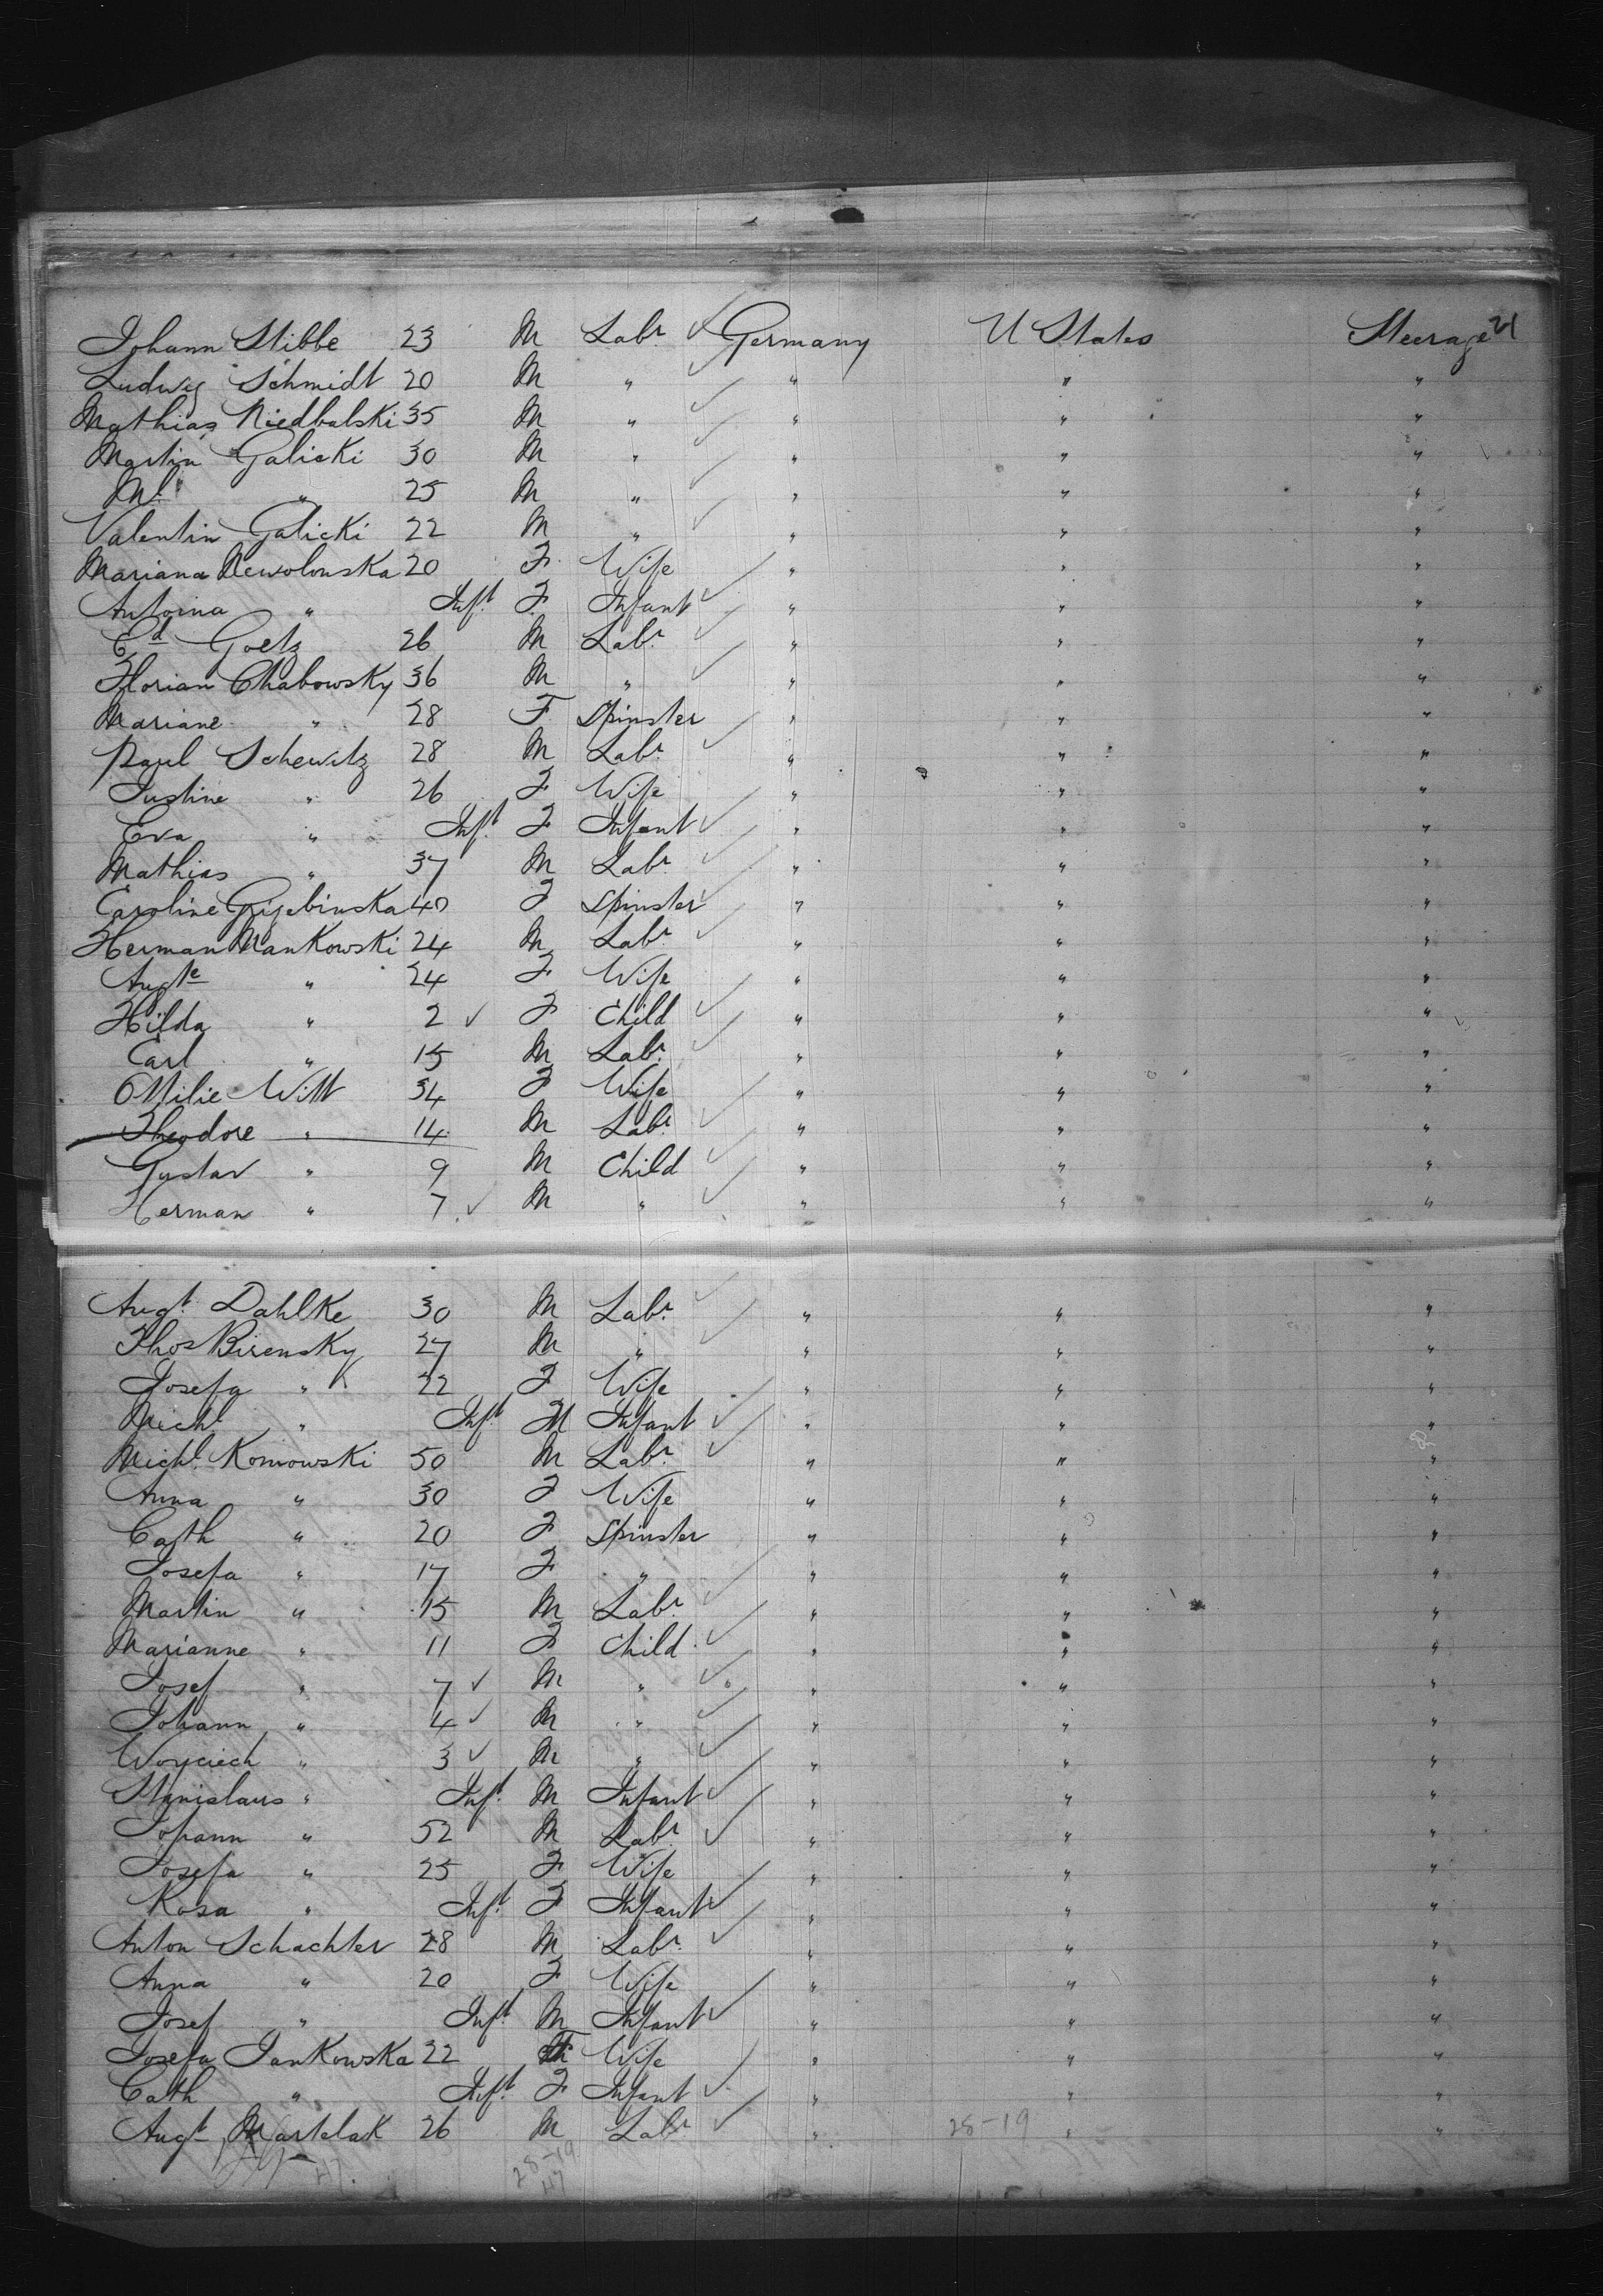 Johann Stibbe 23 M Labr. ✓ Germany U States Steerage 21
Ludwig Schmidt 20 M " ✓ " " "
Mathias Niedbalski 35 M " ✓ " " "
Martin Galicki 30 M " ✓ " " "
" 25 M " ✓ " " "
Valentin Galicki 22 M " ✓ " " "
Mariana 20 F Wife " " "
Antonina " Inft. F Infant ✓ " " "
Ed Goetz 26 M Labr. ✓ " " "
Florian Chabowsky 36 M " ✓ " " "
Mariane " 28 F Spinster " " "
Paul Schewitz 28 M Labr. ✓ " " "
Justine " 26 F Wife " " "
Eva " Inft. F Infant ✓ " " "
Mathias " 37 M Labr. ✓ " " "
Caroline 40 F Spinster ✓ " " "
Herman Mankowski 24 M Labr. ✓ " " "
Augte " 24 F Wife " " "
Hilda " 2 ✓ F Child ✓ " " "
Carl " 15 M Labr. ✓ " " "
Ottilie Witt 34 F Wife " " "
Theodore " 14 M Labr. ✓ " " "
Gustav " 9 M Child ✓ " " "
Herman " 7 ✓ M " ✓ " " "
Augt. Dahlke 30 M Labr. ✓ " " "
Thos Birensky 27 M " ✓ " " "
Josefa " 22 F Wife " " "
Michl. " Inft. M Infant ✓ " " "
Michl. Komowski 50 M Labr. ✓ " " "
Anna " 30 F Wife " " "
Cath " 20 F Spinster " " "
Josefa " 17 F " " " "
Martin " 15 M Labr. ✓ " " "
Marianne " 11 F Child ✓ " " "
Josef " 7 ✓ M " ✓ " " "
Johann " 4 ✓ M " ✓ " " "
Woyciech " 3 ✓ M " ✓ " " "
Stanislaus " Inft. M Infant ✓ " " "
Johann " 52 M Labr. ✓ " " "
Josefa " 25 F Wife " " "
Rosa " Inft. F Infant ✓ " " "
Anton Schachter 28 M Labr. ✓ " " "
Anna " 20 F Wife " " "
Josef " Inft. M Infant ✓ " " "
Josefa Jankowska 22 F Wife " " "
Cath " Inft. F Infant ✓ " " "
Augt. Martelak 26 M Labr ✓ " 28-19 " "
47. 28-19
47